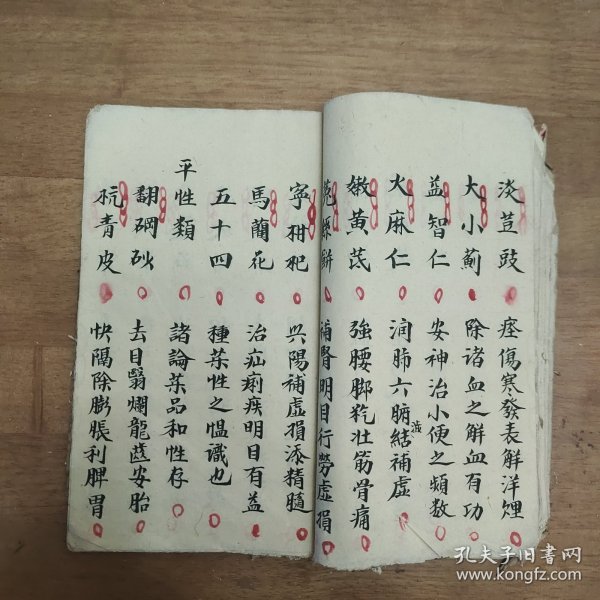 淡荳豉 痊傷寒發表解洋煙
大小薊 除諸血之解血有功
益智仁 安神治小便之頻数
火麻仁 润肺六腑結補虛
嫩黄芪 強腰脚乾壮筋骨痛
補腎明目行勞虛損
寧柑杞 兴陽補虛損添精髓
馬蘭花 治疝痢疾明目有益
五十四 種薬性之愠識也
平性類 諸論薬品和性存
翻硇砂 去目翳爛龍蔬安胎
青皮 快隔除膨脹利脾胃
孔夫子旧書网
www.kongfz.com